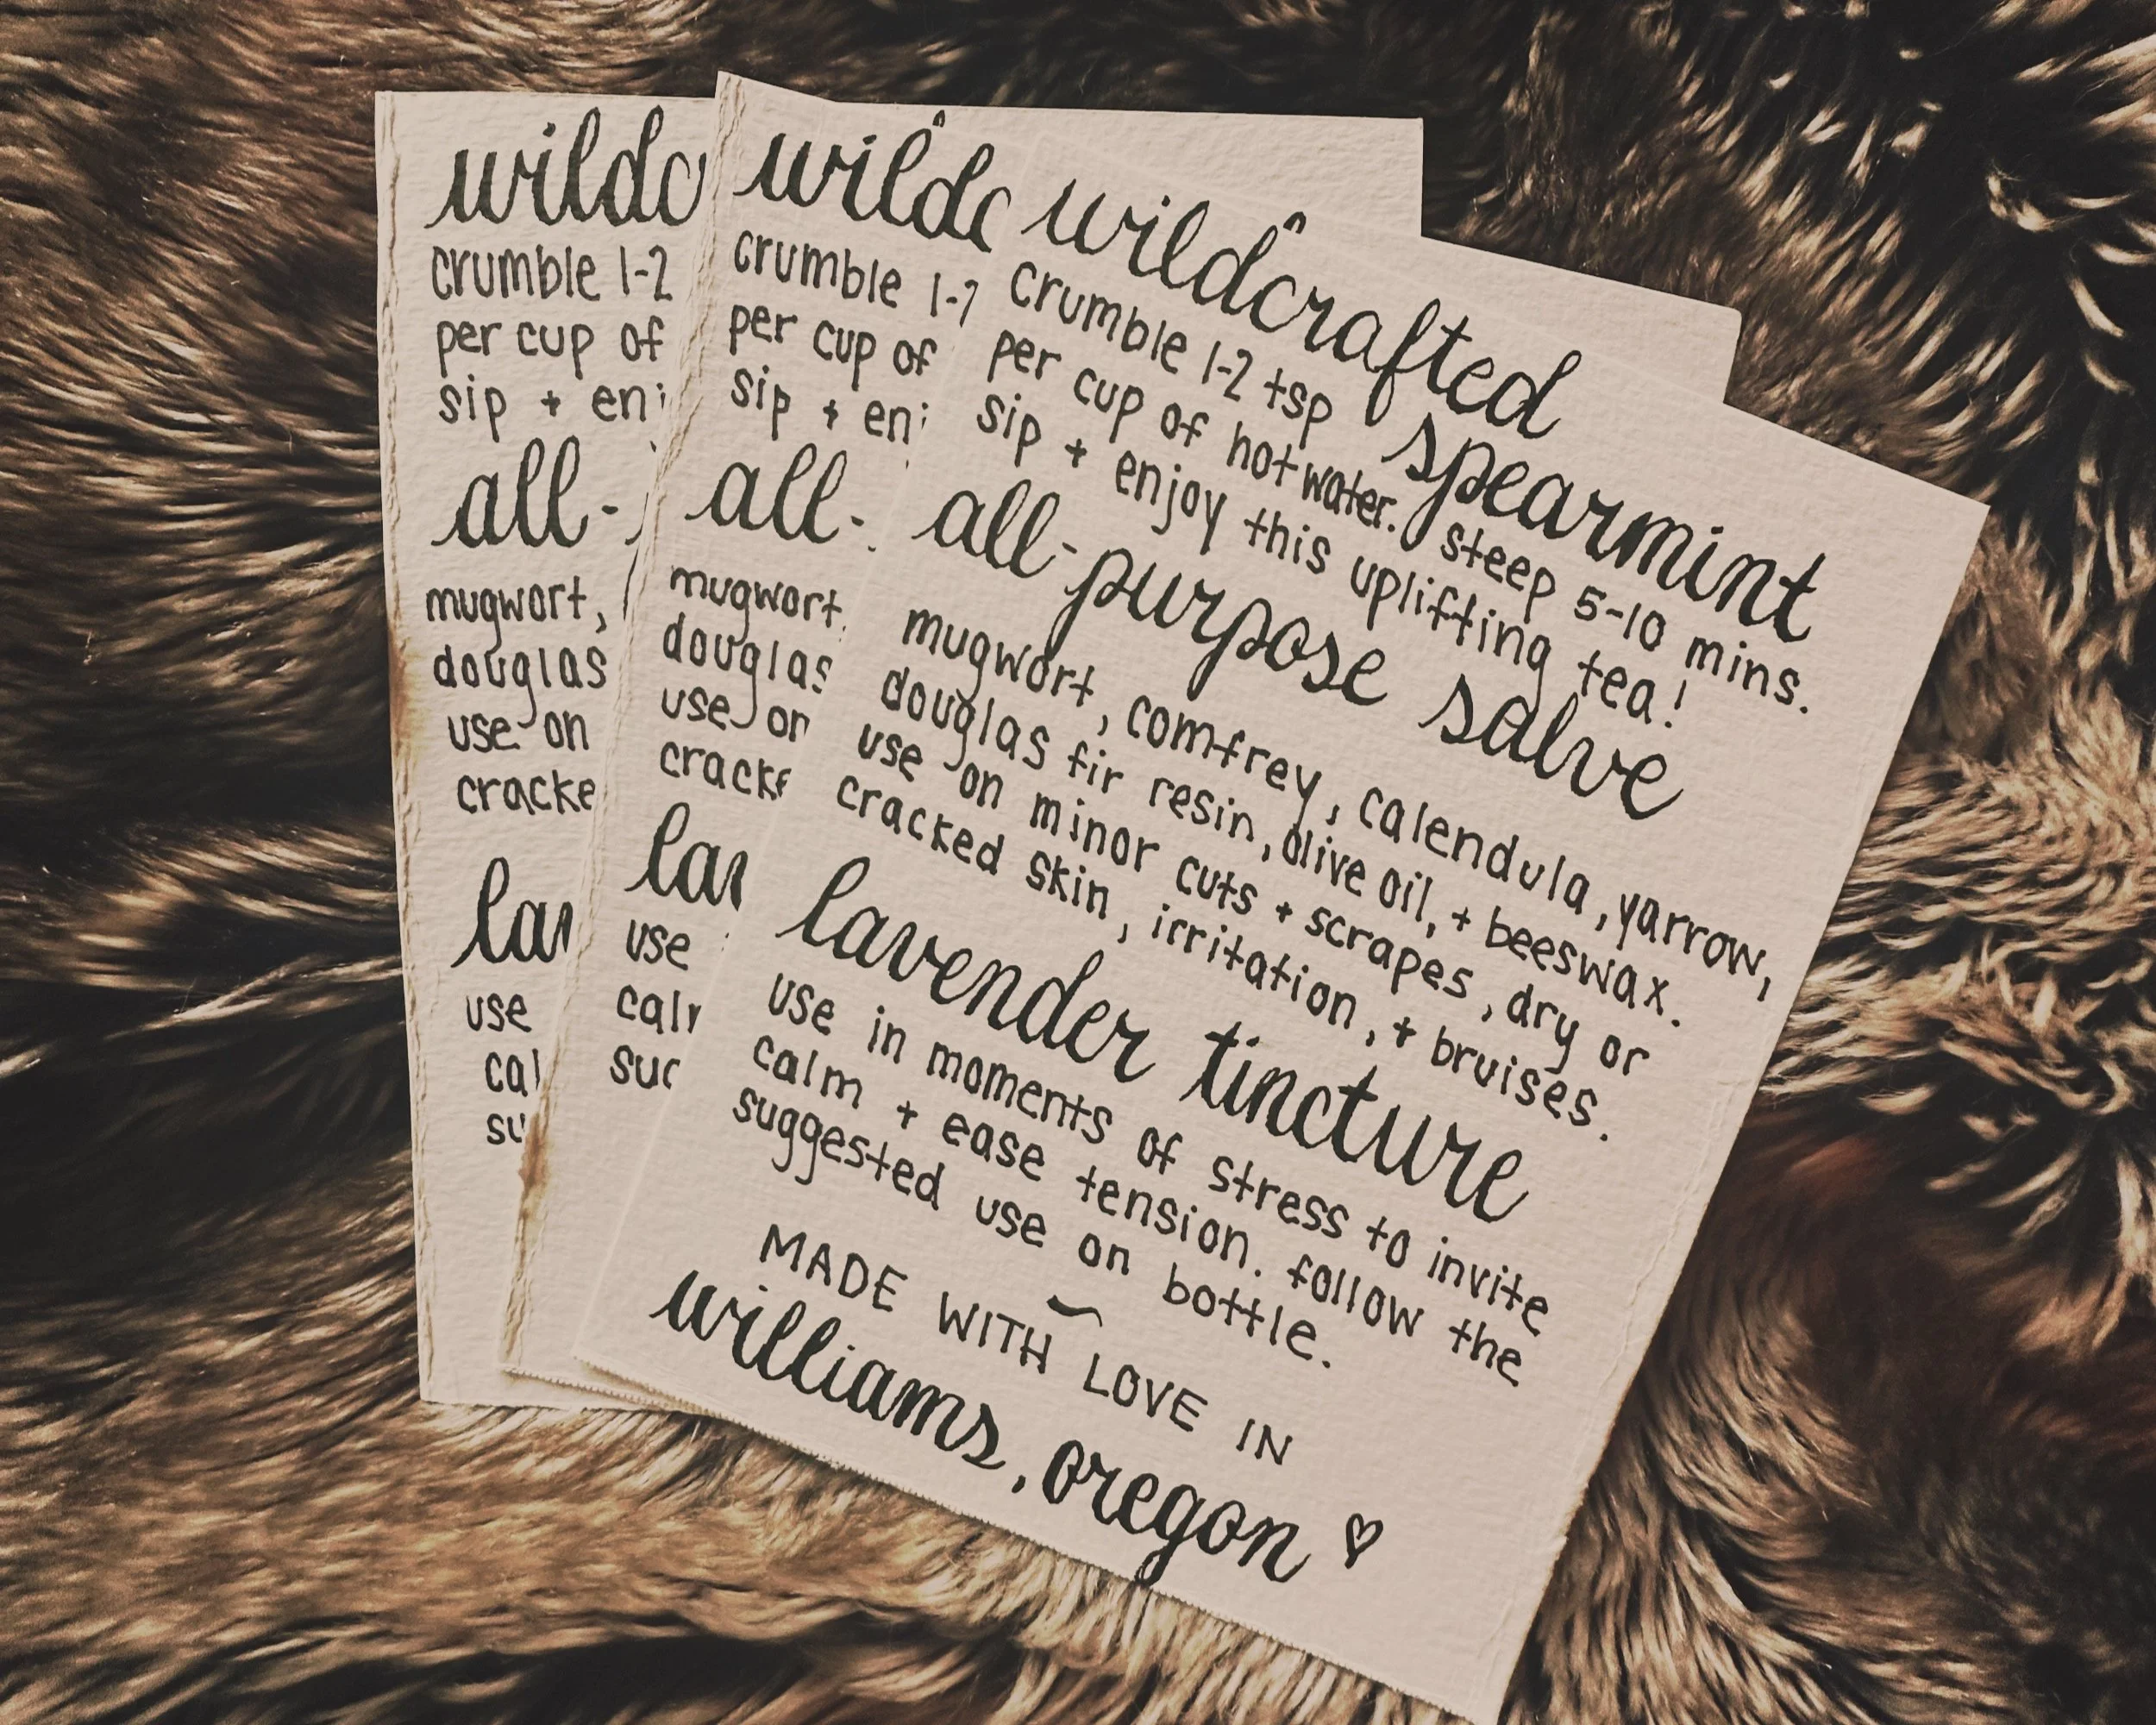 wildc
crumble 1-2
per cup of
sip + enj
all-
mugwort,
douglas
use on
cracke
lav
use
cal
su
wildc
crumble 1-2
per cup of
sip + enj
all-
mugwort,
douglas
use on
cracke
lav
use
calm
sug
wildcrafted spearmint
crumble 1-2 tsp
per cup of hot water. steep 5-10 mins.
sip + enjoy this uplifting tea!
all-purpose salve
mugwort, comfrey, calendula, yarrow,
douglas fir resin, olive oil, + beeswax.
use on minor cuts + scrapes, dry or
cracked skin, irritation, + bruises.
lavender tincture
use in moments of stress to invite
calm + ease tension. follow the
suggested use on bottle.
~
MADE WITH LOVE IN
williams, oregon ♡